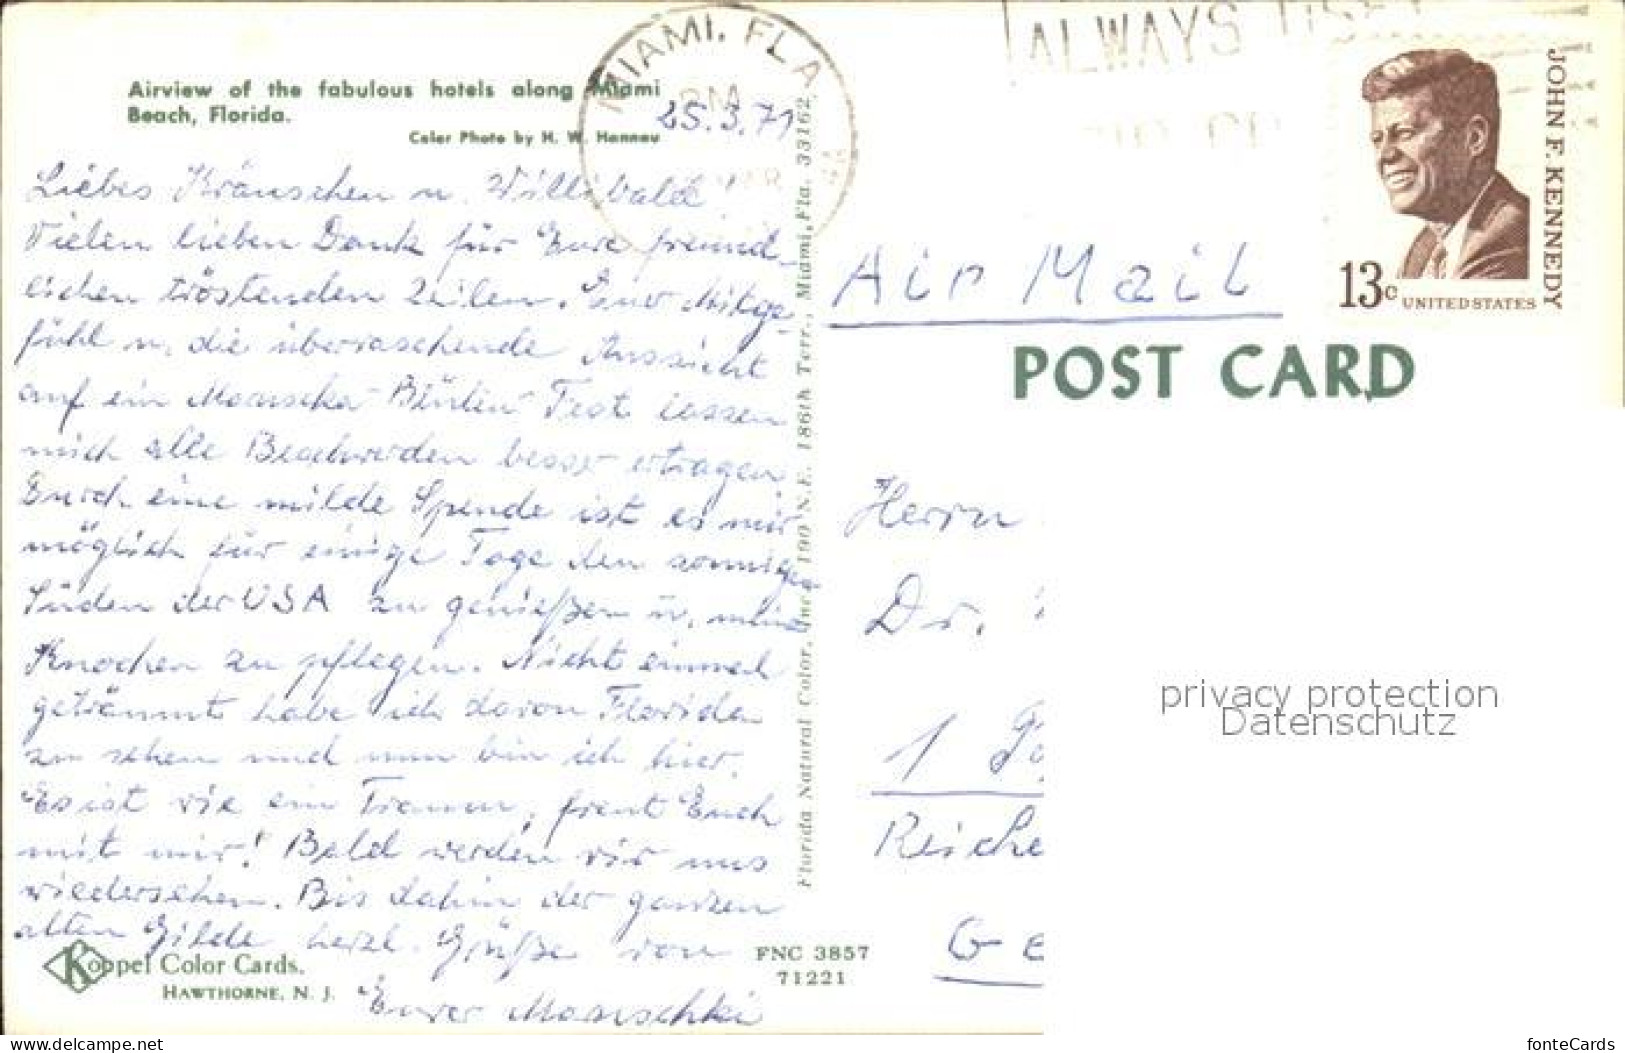 Airview of the fabulous hotels along Miami
Beach, Florida.
Color Photo by H. W. Hannau
MIAMI, FLA
PM
MAR
25.3.71
ALWAYS USE
JOHN F. KENNEDY
13c UNITED STATES
Air Mail
POST CARD
Liebes Kränzchen u.
Vielen lieben Dank für Eure freund-
lichen tröstenden Zeilen. Euer Mitge-
fühl u. die überraschende Aussicht
auf ein Fest lassen
mich alle Beschwerden besser ertragen
Durch eine milde Spende ist es mir
möglich für einige Tage den sonnigen
Süden der USA zu genießen u. meine
Knochen zu pflegen. Nicht einmal
geträumt habe ich davon Florida
zu sehen und nun bin ich hier.
Es ist wie ein Traum, freut Euch
mit mir! Bald werden wir uns
wiedersehen. Bis dahin der ganzen
alten Gilde herzl. Grüße von
Eurer
Florida Natural Color, Inc., 190 N.E. 186th Terr., Miami, Fla. 33162
Herrn
Dr.
1
Reiche
GE
Koppel Color Cards.
HAWTHORNE, N. J.
FNC 3857
71221
privacy protection
Datenschutz
www.delcampe.net
fonteCards